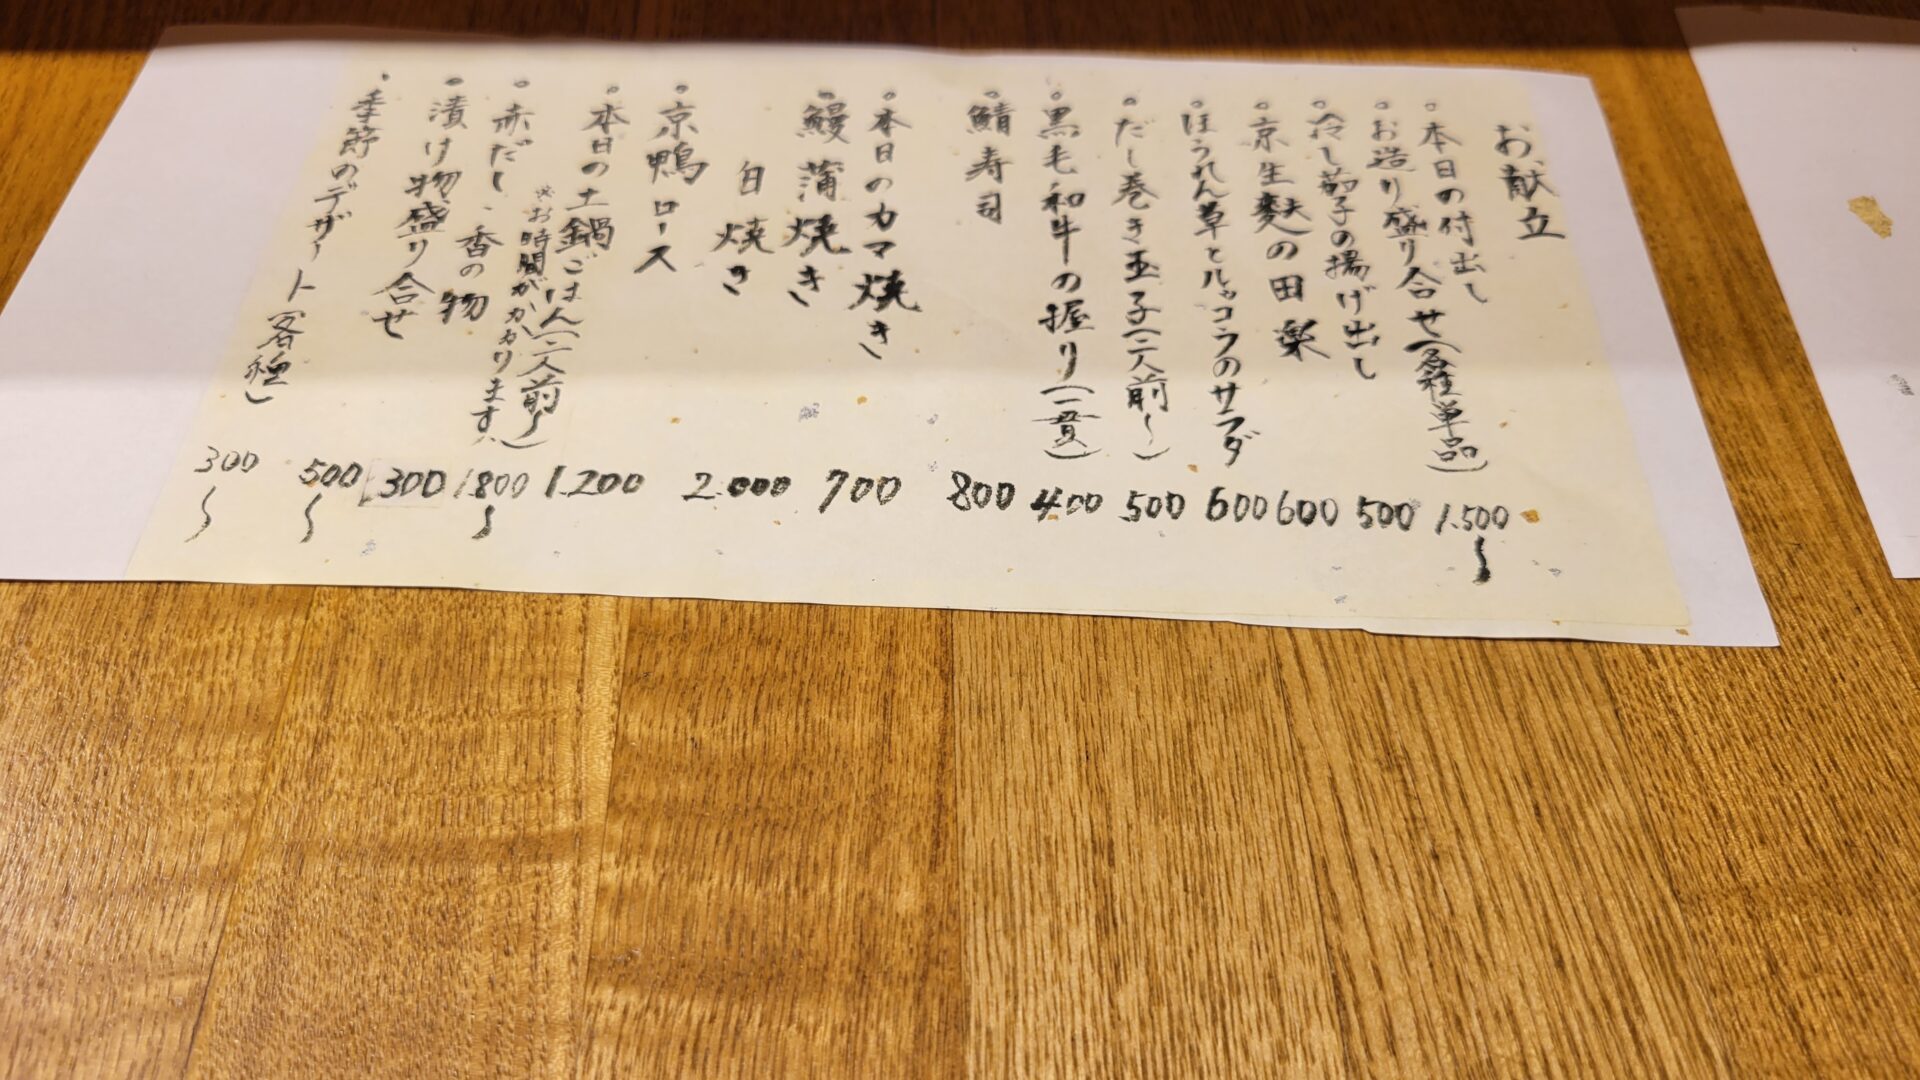 お献立
・本日の付出し
・お造り盛り合せ(各種単品) 1.500〜
・冷し茄子の揚げ出し 500
・京生麩の田楽 600
・ほうれん草とルッコラのサラダ 600
・だし巻き玉子(二人前〜) 500
・黒毛和牛の握り(一貫) 400
・鯖寿司 800
・本日のカマ焼き 700
・鰻蒲焼き 2.000
白焼き
・京鴨ロース 1.200
・本日の土鍋ごはん(二人前〜) 1.800〜
※お時間がかかります。
・赤だし、香の物 300
・漬け物盛り合せ 500〜
・季節のデザート(各種) 300〜